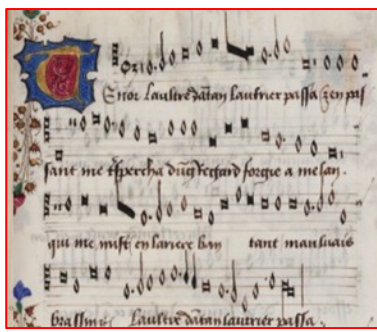 Tenor Laultre dātan lautrier passa / en pas
sant me t͂spercha dūg regard forgie a melan.
qui me mist en lariere ban tant mauluais
brassing Laultre dātan lautrier passa.